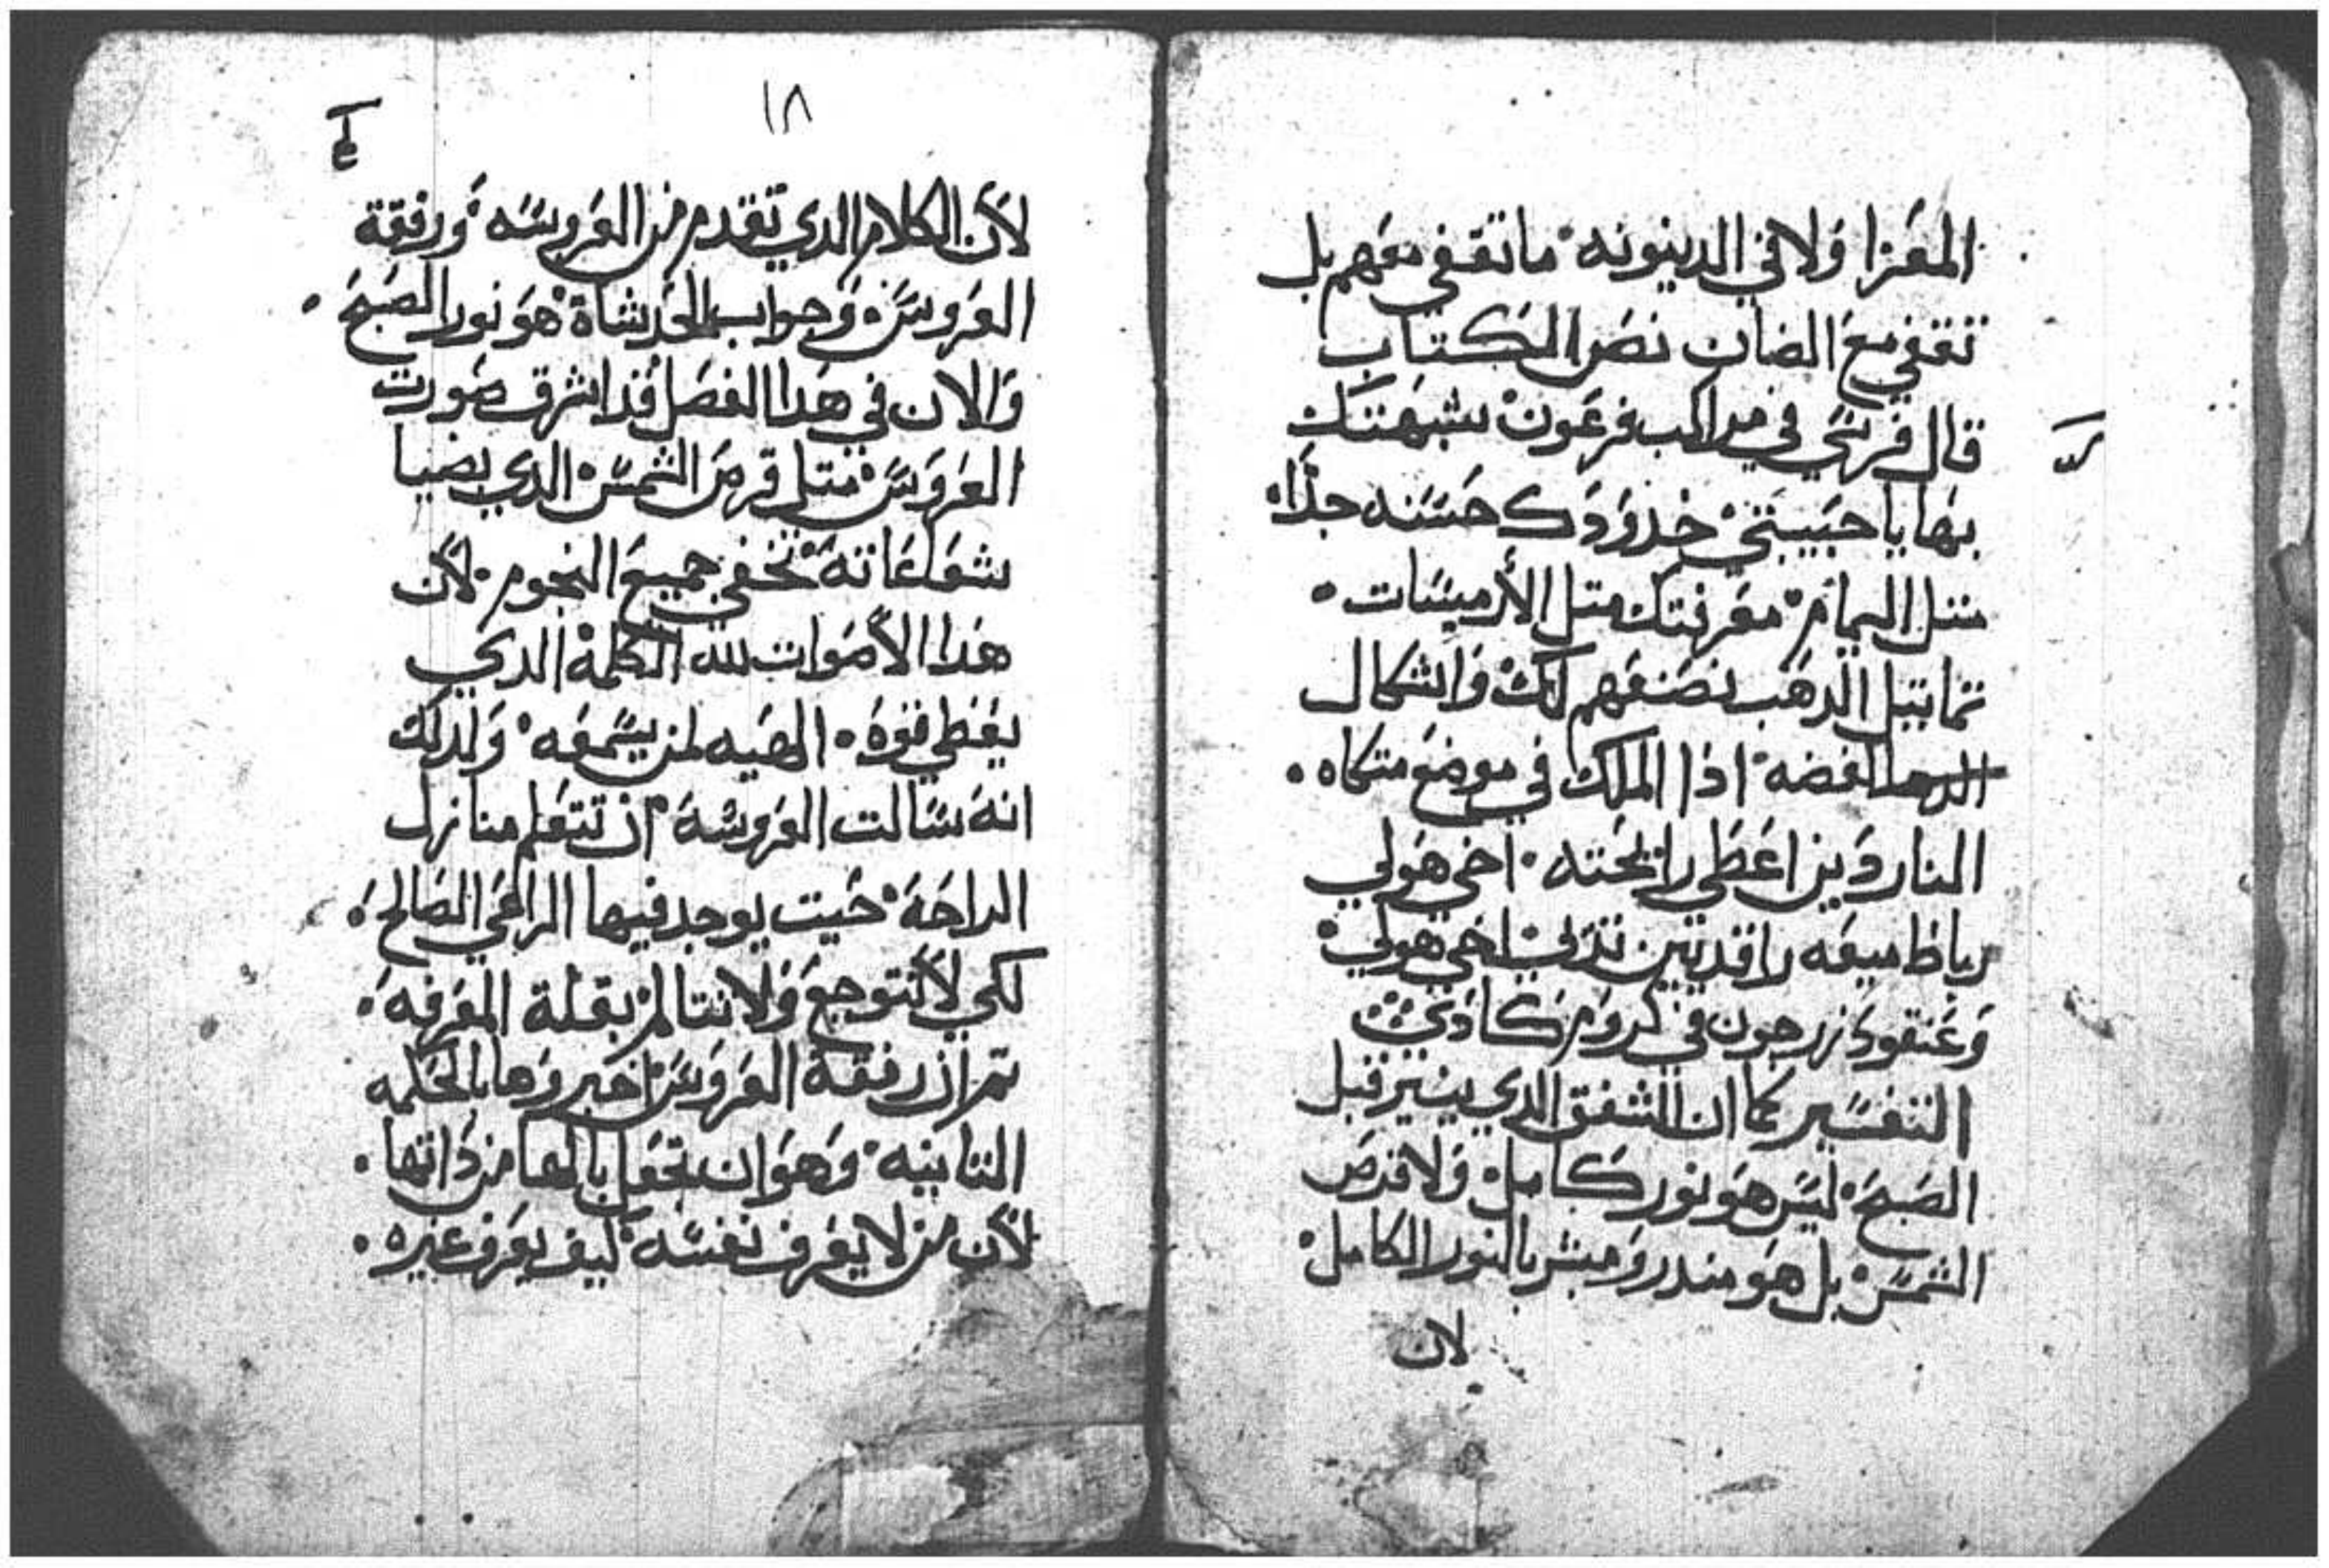 المعزا ولا في الدينونه ما تقفي معهم بل
تقفي مع الضان نص الكتاب
قال فرسي في مراكب فرعون شبهتك
بها يا حبيبتي خدودك حسنه جدا
متل اليمام معرفتك متل الأرميسات
تماتيل الدهب نصنعهم لك واشكال
الفضه اذا الملك في موضع متكاه
الناردين اعطي رايحته اخي هو لي
رباط ميعه راقد بين تديي اخي هو لي
وعنقود زرجون في كروم كادي
التفسير كما ان الشفق الدي ينير قبل
الصبح ليس هو نور كامل ولا قرص
الشمس بل هو مندر ومبشر بالنور الكامل
لان
١٨
لأن الكلام الدي تقدم من العروسه ورفقة
العروس وجواب الخدشاة هو نور الصبح
والان في هدا الفصل قد اشرق صورت
العروس متل قرص الشمس الدي بضيا
شعاعاته تخفي جميع النجوم لأن
هدا الأصوات لله الكلمة الدي
يعطي قوه الهيه لمن يسمعه ولدلك
انه سالت العروسة ان تتعلم منازل
الراحة حيت يوجد فيها الراعي الصالح
لكي لا تتوجع ولا تتالم بقلة المعرفه
تم ان رفقة العروس اخبروها بالحكمه
التانيه وهو ان تجعل بالها من داتها
لأن من لا يعرف نفسه كيف يعرف غيره